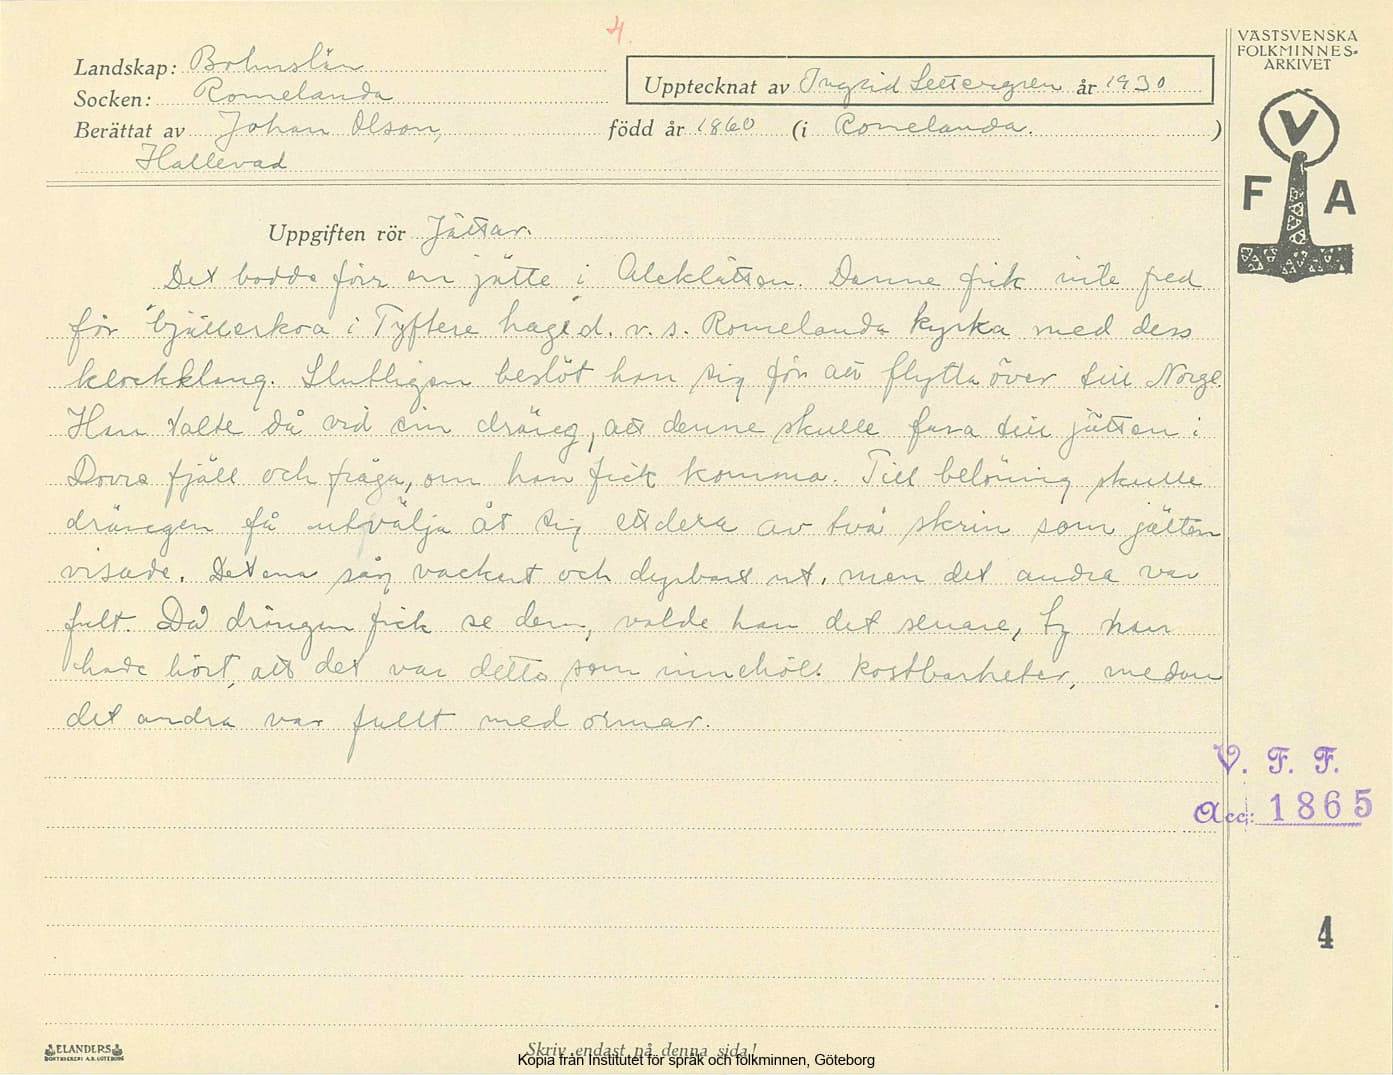 4.
Landskap: Bohuslän
Socken: Romelanda
Upptecknat av Ingrid Settergren år 1930
Berättat av Johan Olson, född år 1860 (i Romelanda.)
Hallevad
VÄSTSVENSKA
FOLKMINNES-
ARKIVET
V
F A
Uppgiften rör Jättar.
Det bodde förr en jätte i Aleklätten. Denne fick inte fred
för "bjällerkoa i Tyftere hage" d. v. s. Romelanda kyrka med dess
klockklang. Slutligen beslöt han sig för att flytta över till Norge
Han talte då vid sin dräng, att denne skulle fara till jätten i
Dovre fjäll och fråga, om han fick komma. Till belöning skulle
drängen få utvälja åt sig ettdera av två skrin som jätten
visade. Det ena såg vackert och dyrbart ut, men det andra var
fult. Då drängen fick se dem, valde han det senare, ty han
hade hört, att det var detta som innehöll kostbarheter, medan
det andra var fullt med ormar.
V. F. F.
Acc: 1865
4
ELANDERS
BOKTRYCKERI A.B. GÖTEBORG
Skriv endast på denna sida!
Kopia från Institutet för språk och folkminnen, Göteborg